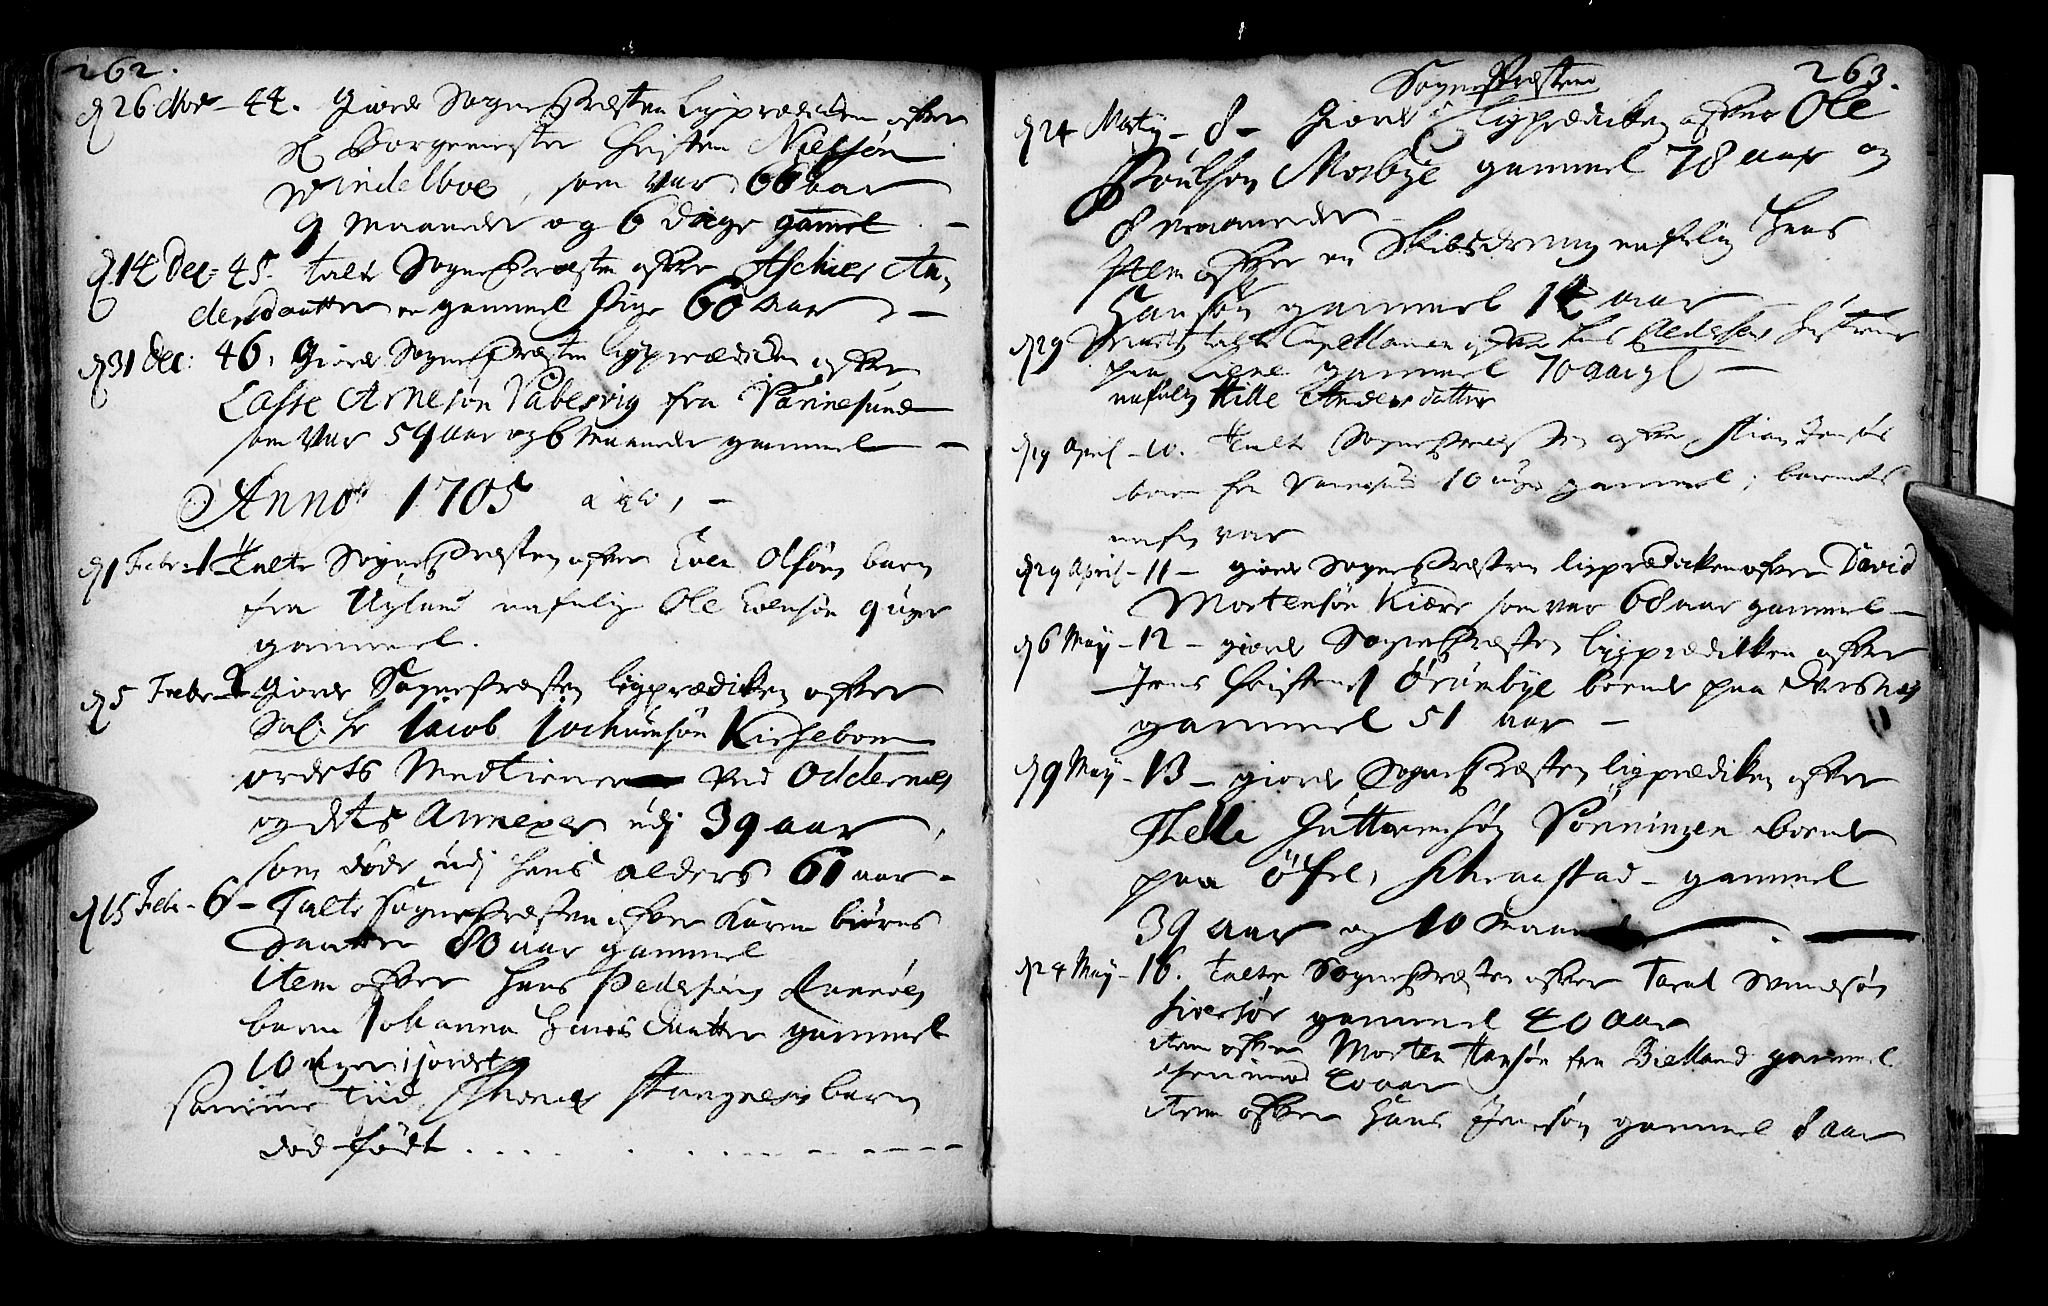 262.
d 26 Nov - 44. Giorde SognePræsten ligprædicken efter
Sl Borgemester Christen Nielsøn
Windelboe, som var 66 aar
9 Maaneder og 6 dage gamel. -
d 14 Dec - 45. talte SognePræsten efter Aschier An-
dersdaatter en gammel Pige 60 aar -
d 31 dec: 46. Giorde SognePræsten ligprædicken efter
Lasse Arnesøn Vabesvig fra Vannesund
som var 59 aar og 6 Maaneder gammel -
Anno 1705
d 1 Febr - 1 - Talte SognePræsten efter Even Olsøns barn
fra Uglund nafnlig Ole Evensøn 9 uger
gammel.
d 5 Febr - Giorde SognePræsten ligprædicken efter
Sal: Hr Jacob Jochumsøn Kirsebom
ordets Medtienere ved Oddernes
og dets Annexer udj 39 aar,
som døde udj hans alders 61 aar -
d 15 Febr - 6 - Talte SognePræsten efter Karen biørns
daatter 80 aar gammel
item efter Hans Pedersøns
barn Johanna Hansdaatter gammel
10 uger; jordet
samme tiid barn
død født . . . . . . . . - - - - -
263.
SognePræsten
d 24 Marty - 8 - Giorde ligprædicken efter Ole
Poulsøn Mosbye gammel 78 aar og
8 maaneder -
Item efter en Skibsdreng nafnlig Hans
Hansøn gammel 14 aar
d 29 talte Capellanen efter hustrue
paa gammel 70 aar
nafnlig Kille Andersdatter
d 19 April - 10. Talte SognePræsten efter Stian Jensøns
barn fra Vannesund 10 uger gammel, barnets
nafn var
d 29 April - 11 - giorde SognePræsten ligprædicken efter David
Mortensøn Kiære som var 68 aar gammel -
d 6 May - 12 - giorde SognePræsten ligprædicken efter
Jens Christens boende paa
gammel 51 aar -
d 9 May - 13 - giorde SognePræsten ligprædiken efter
Guttormsøn Rønningen boende
paa gammel
39 aar og 10 Maaneder
d 24 May - 16. Talte SognePræsten efter Taral Svendsøn
gammel 40 aar
item efter Morten Hansøn fra Bielland gammel
40 aar
item efter Hans Jensøn gammel 8 aar